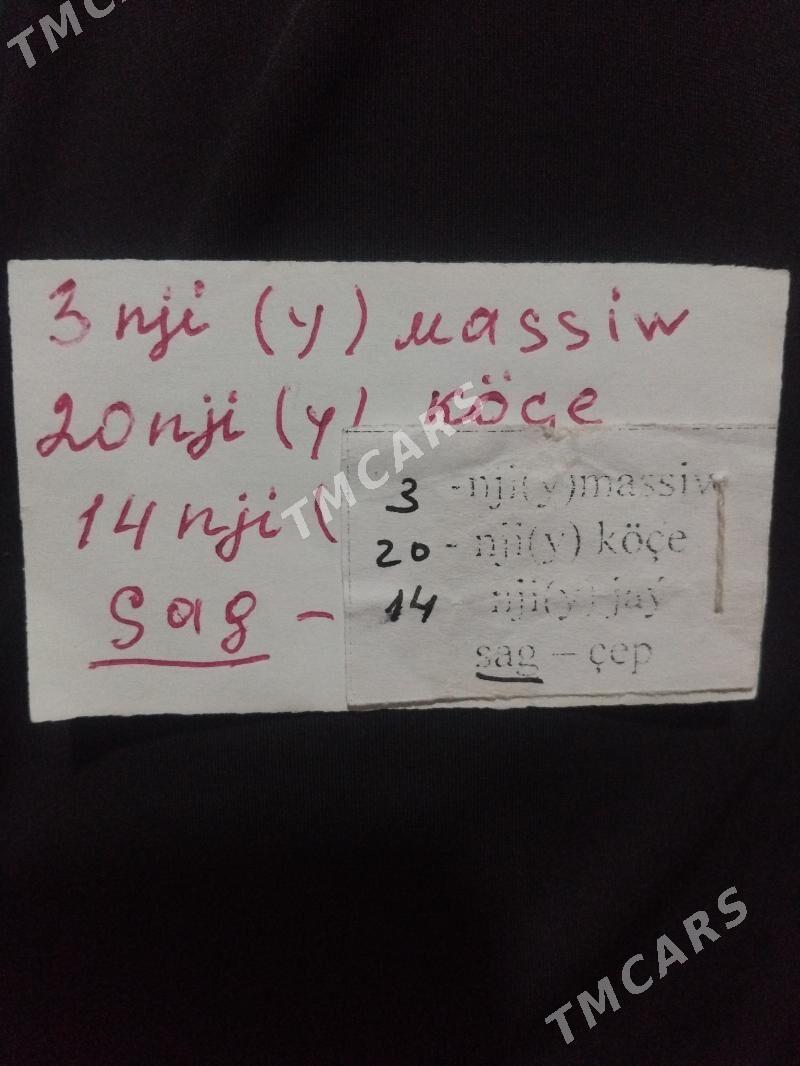 3 nji (y) massiw
20 nji (y) köçe
14 nji (
sag –
3 -nji(y)massiw
20 - nji(y) köçe
14 nji(y) jaý
sag – çep
TMCARS
TMCARS
TMCARS